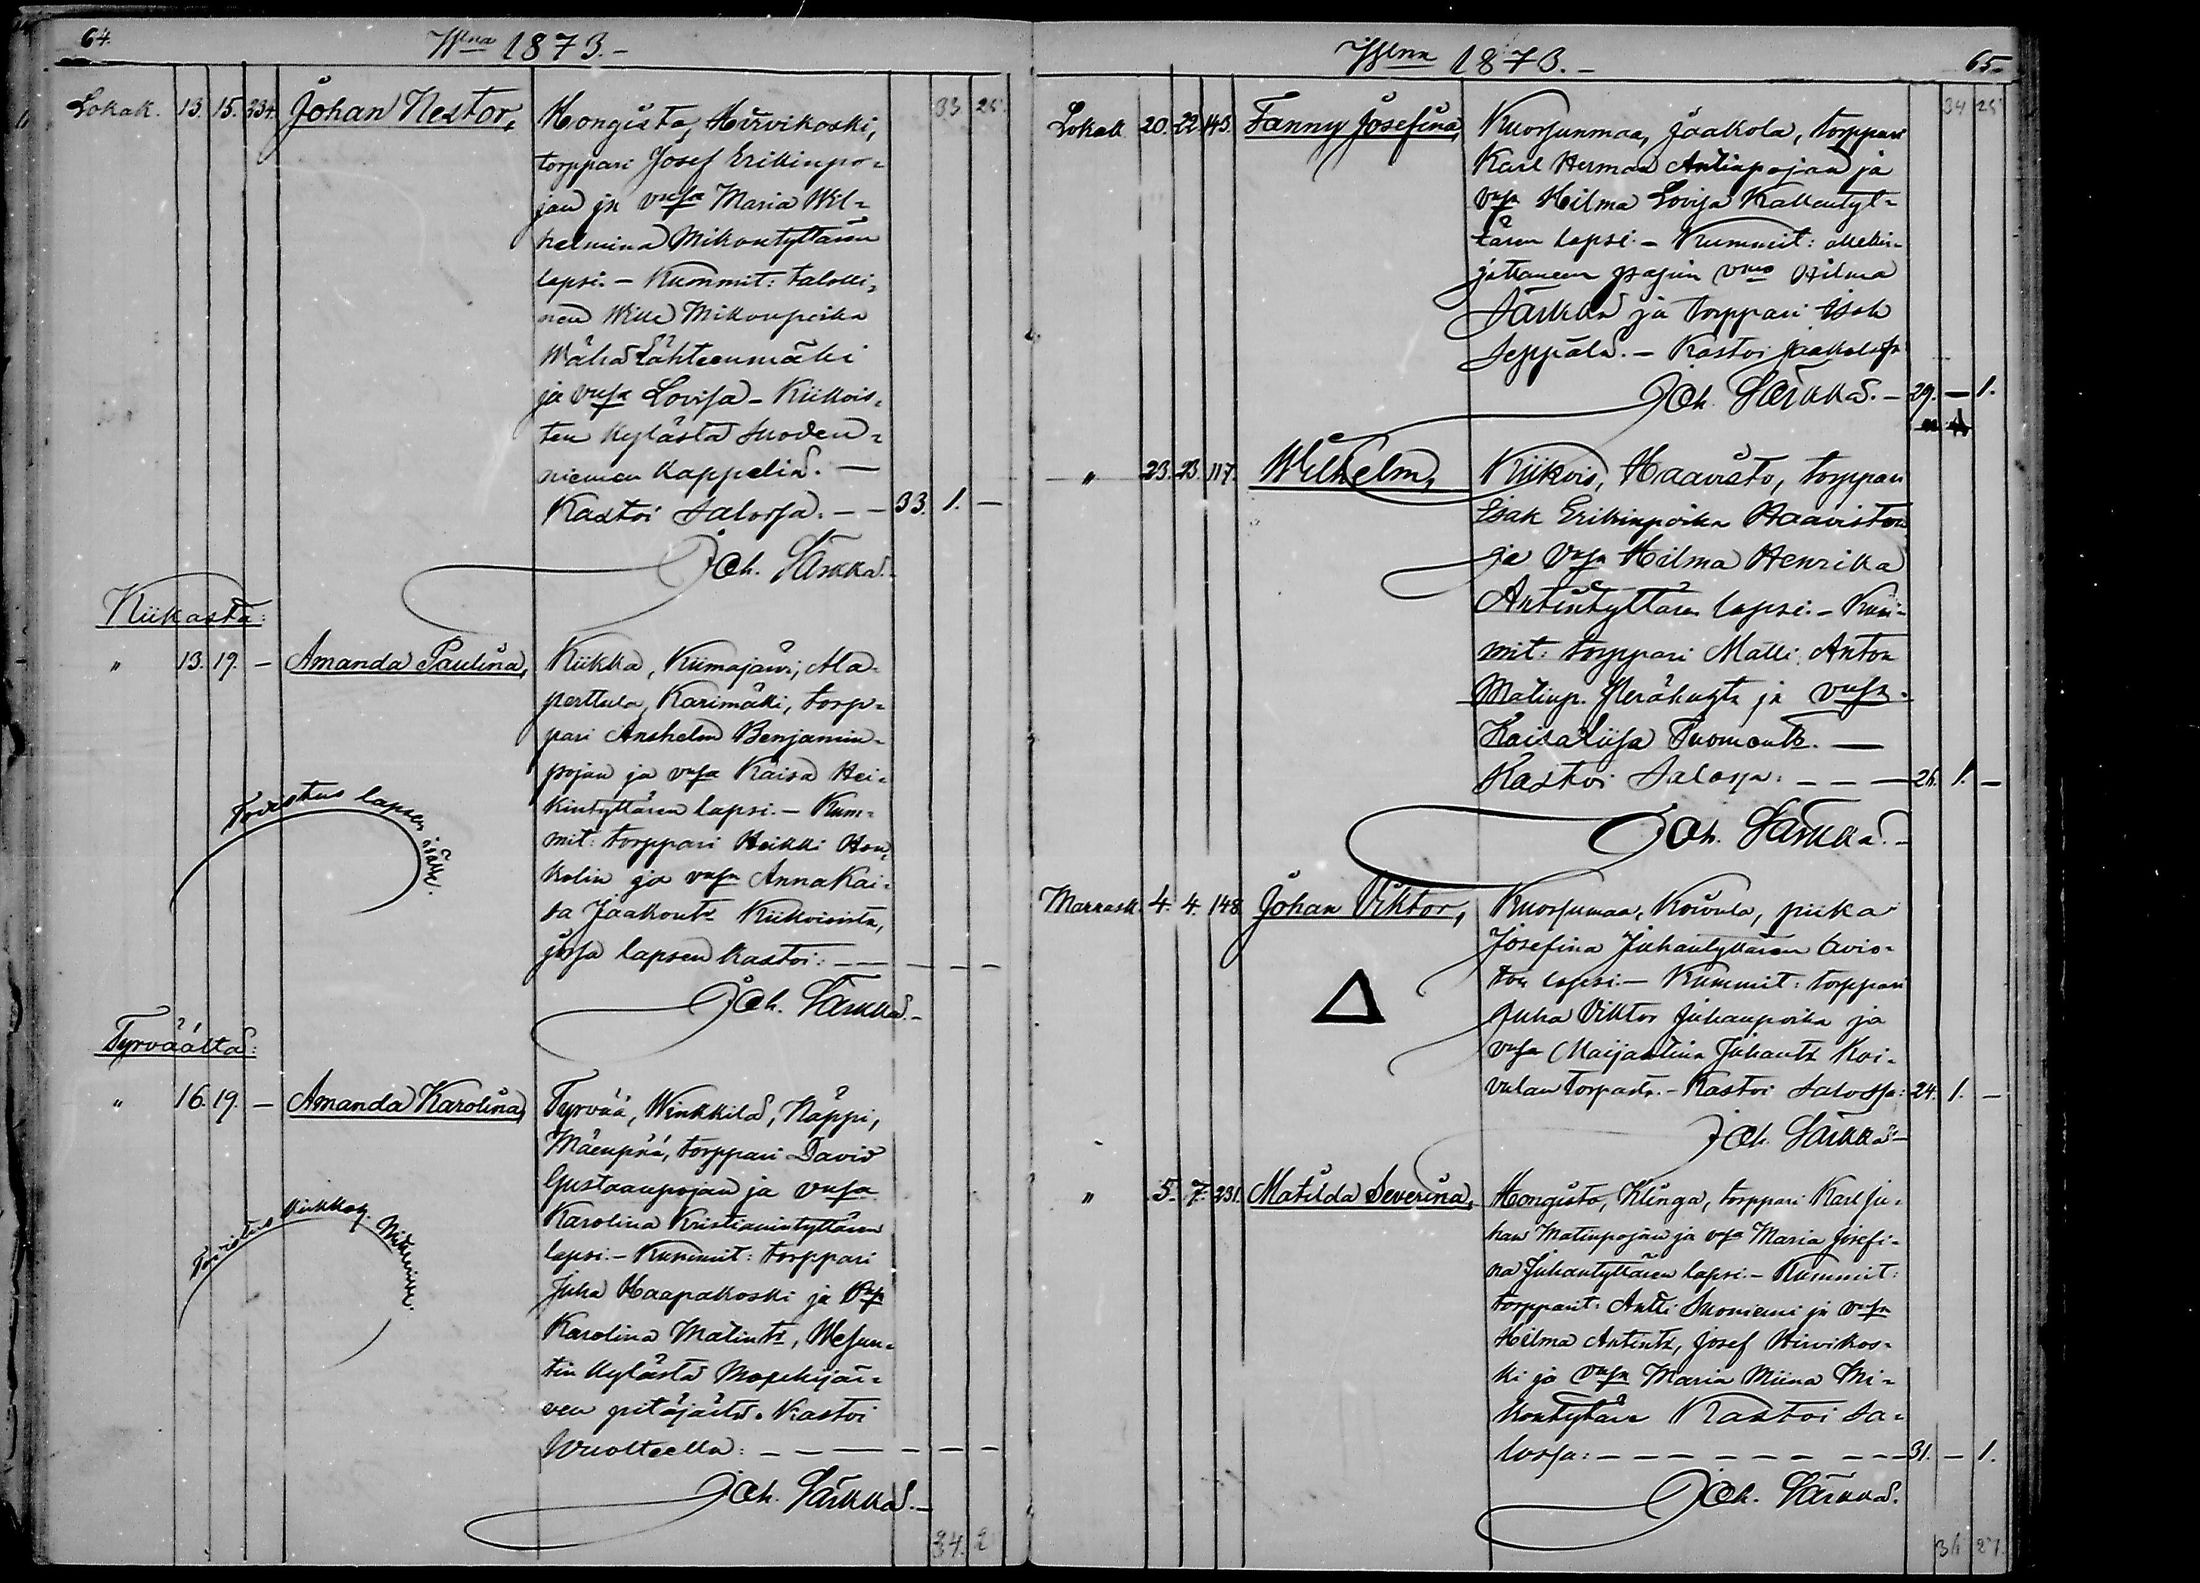 64.
1873.-
33 25.
Lokak. 13. 15. 234. Johan Nestor, Mongista, Hirvikoski,
torppari Josef Erikinpo-
jan ja vmsa Maria Wil-
helmina Mikontyttären
lapsi. - Kummit: talolli-
nen Wille Mikonpoika
Wähä Lähteenmäki
ja vmsa Lovisa - Kiikois-
ten kylästä Suoden-
niemen kappelia. -
Kastoi Salossa. - - 33. 1. -
Joh. Särkkä.
Kiikasta:
" 13. 19. - Amanda Paulina, Kiikka, Kiimajärvi, Ala-
perttula, Karimäki, torp-
pari Anshelm Benjamin-
pojan ja vmsa Kaisa Hei-
kintyttären lapsi. - Kum-
mit: torppari Heikki Hon-
kolin ja vmsa Anna Kai-
sa Jaakontr Kiikoisista,
jossa lapsen kastoi: - - - - -
Joh. Särkkä.-
Todistus lapsen isälle.
Tyrväältä:
" 16. 19. - Amanda Karolina, Tyrvää, Winkkilä, Näppi,
Mäenpää, torppari David
Gustaanpojan ja vmsa
Karolina Kristianintyttären
lapsi. - Kummit: torppari
Juha Haapakoski ja vmsa
Karolina Matintr, Wesun-
tin kylästä Mouhijär-
ven pitäjästä. Kastoi
Wuolteella: - - - - - -
Joh. Särkkä.-
Todistus kirkkoh.
34. 2
1873.-
65.
34 25
Lokak. 20. 22. 145. Fanny Josefina, Kuorsunmaa, Jaakola, torppari
Karl Herman Antinpojan ja
vmsa Hilma Lovisa Kallentyt-
tären lapsi. - Kummit: allekir-
jottaneen papin vmo Hilma
Särkkä ja torppari Isak
Seppälä. - Kastoi Jaakolassa
Joh. Särkkä. - 29. - 1.
" 23. 23. 117. Wilhelm, Kiikois, Haavisto, torppari
Isak Erikinpoika Haaviston
ja vmsa Hilma Henrika
Antintyttären lapsi. - Kum-
mit: torppari Matti Anton
Matinp. ja vmsa
Kaisaliisa Tuomontr. -
Kastoi Salossa: - - - 26. 1. -
Joh. Särkkä.-
Marrask. 4. 4. 148. Johan Viktor, Kuorsumaa, Koivula, piika
Josefina Juhantyttären avio-
ton lapsi. - Kummit: torppari
Juha Viktor Juhanpoika ja
vmsa Maijastina Juhantr Koi-
vulan torpasta. - Kastoi Salossa: 24. 1. -
Joh. Särkkä-
" 5. 7. 231. Matilda Severina, Mongisto, Klinga, torppari Karl Ju-
han Matinpojan ja vmsa Maria Josefi-
na Juhantyttären lapsi. - Kummit:
torpparit: Antti Suoniemi ja vmsa
Hilma Antintr, Josef Hirvikos-
ki ja vmsa Maria Miina Mi-
kontytär. Kastoi Sa-
lossa: - - - - - - - 31. - 1.
Joh. Särkkä.
36 27.